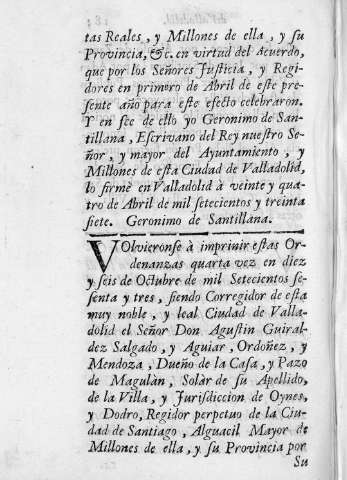 tas Reales, y Millones de ella, y su
Provincia, &c. en virtud del Acuerdo,
que por los Señores Justicia, y Regi-
dores en primero de Abril de este pre-
sente año para este efecto celebraron.
Y en fee de ello yo Geronimo de San-
tillana, Escrivano del Rey nuestro Se-
ñor, y mayor del Ayuntamiento, y
Millones de esta Ciudad de Valladolid,
lo firmè en Valladolid à veinte y qua-
tro de Abril de mil setecientos y treinta
y siete. Geronimo de Santillana.
VOlvieronse à imprimir estas Or-
denanzas quarta vez en diez
y seis de Octubre de mil Setecientos se-
senta y tres, siendo Corregidor de esta
muy noble, y leal Ciudad de Valla-
dolid el Señor Don Agustin Guiral-
dez Salgado, y Aguiar, Ordoñez, y
Mendoza, Dueño de la Casa, y Pazo
de Magulàn, Solàr de su Apellido,
de la Villa, y Jurisdiccion de Oynes,
y Dodro, Regidor perpetuo de la Ciu-
dad de Santiago, Alguacil Mayor de
Millones de ella, y su Provincia por
Su